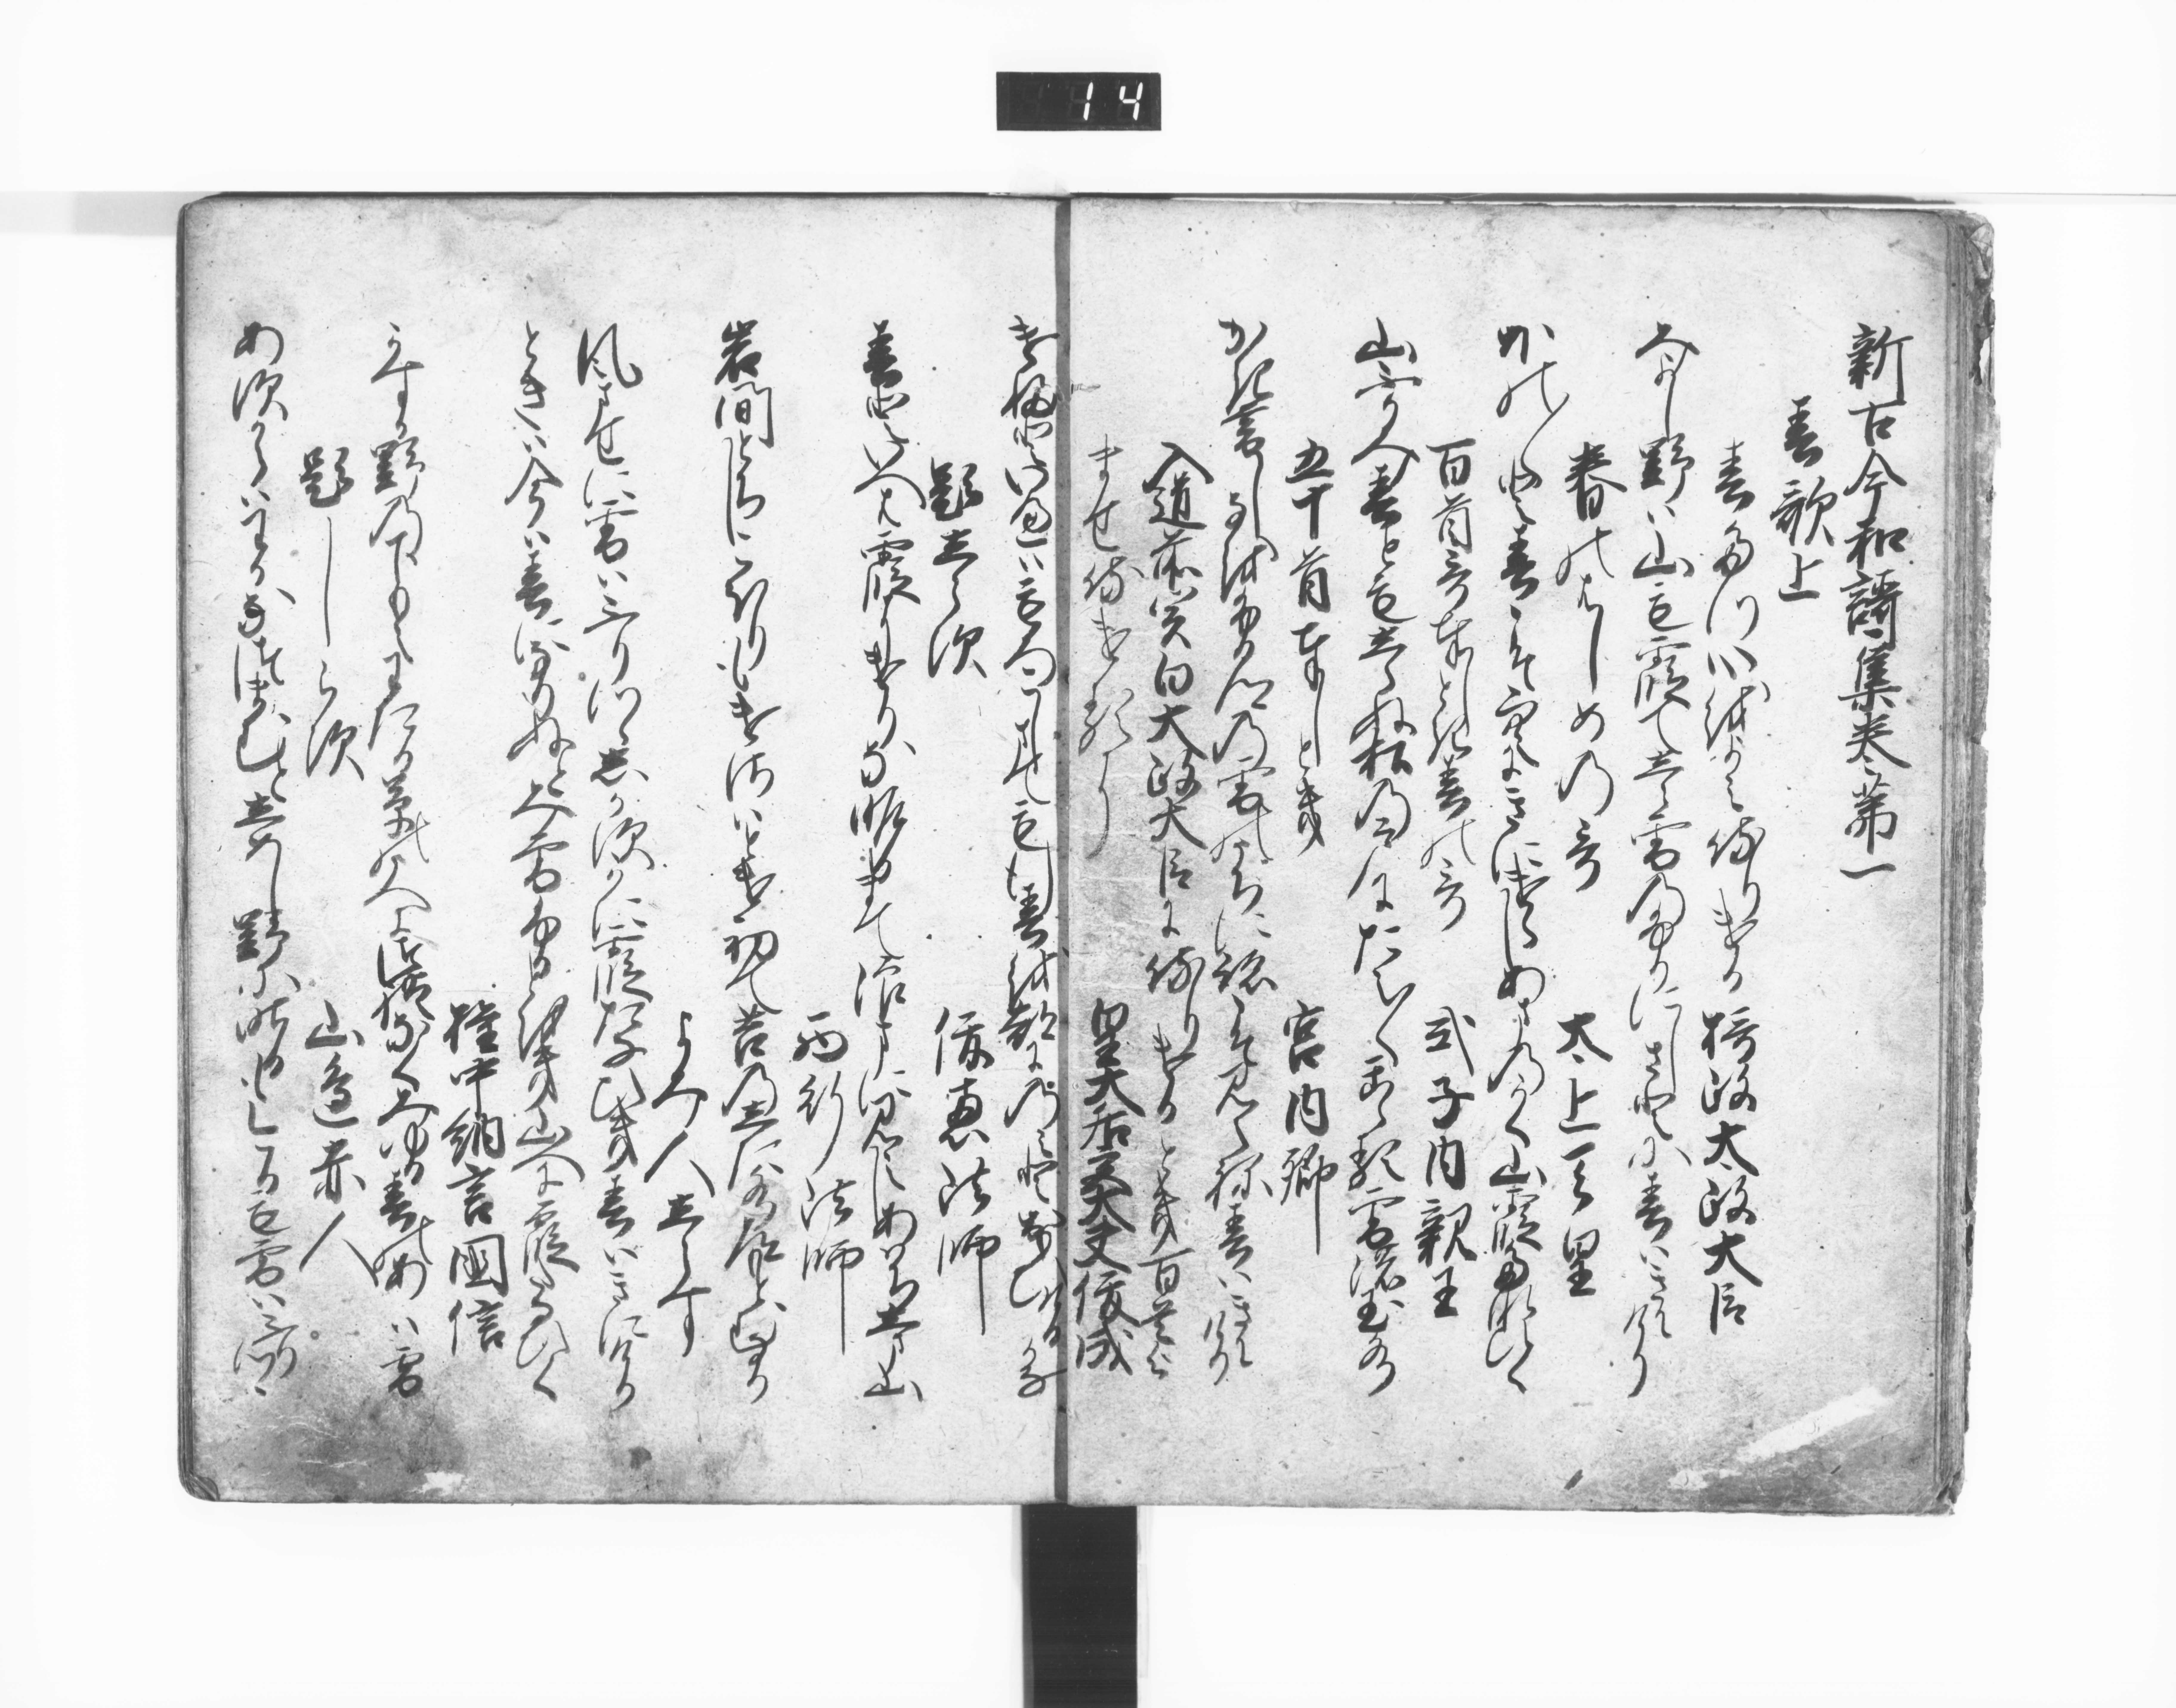 14
新古今和謌集巻第一
春歌上
春たつ心をよみ侍りける 摂政太政大臣
みよし野は山も霞てしら雪のふりにしさとに春はきにけり
春のはしめの哥 太上天皇
ほの〳〵と春こそ空にきにけらしあまのかく山霞たなひく
百首哥奉しとき春の哥 式子内親王
山ふかみ春ともしらぬ松の戸にたえ〳〵かゝる雪の玉水
五十首奉しとき 宮内卿
かきくらし猶ふる里の雪のうちに跡こそ見えね春はきにけり
入道前関白太政大臣に侍りけるとき百首哥よ
ませ侍けるに 皇太后宮大夫俊成
けふといへはもろこしまても行春を都にのみと思ひけるかな
題しらす 俊恵法師
春といへは霞にけりな昨日まて浪まに見えしあはちしま山
西行法師
岩間とちしこほりもけさはとけ初て苔のした水道もとむらん
よみ人しらす
風ませに雪はふりつゝしかすかに霞たなひき春はきにけり
ときは今は春になりぬとみ雪ふるとをき山へに霞たなひく
権中納言圀信
かすか野の下もえわたる草の上につれなくみゆる春のあは雪
題しらす 山邉赤人
あすからはわかなつまむとしめし野に昨日もけふも雪はふりつゝ